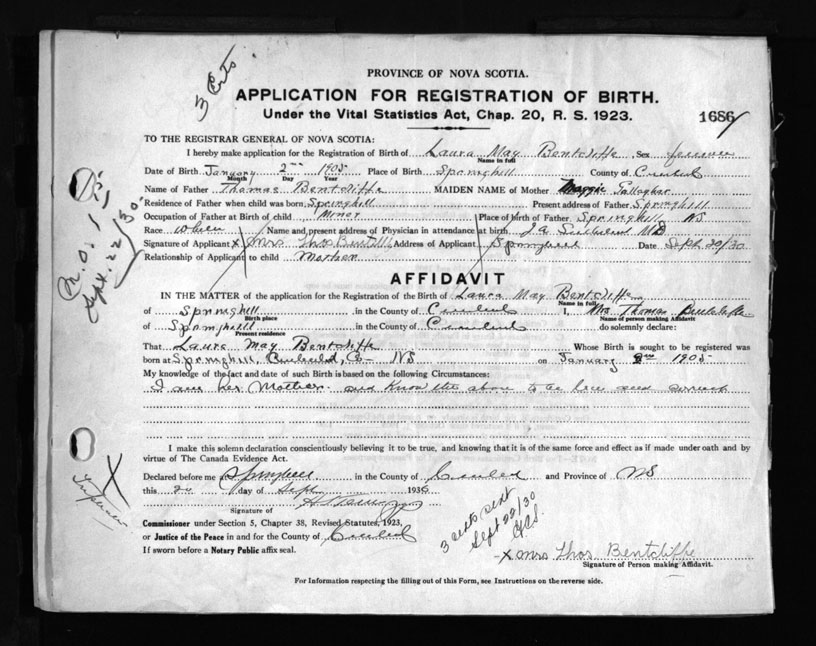 3 Certs
PROVINCE OF NOVA SCOTIA.
APPLICATION FOR REGISTRATION OF BIRTH.
Under the Vital Statistics Act, Chap. 20, R. S. 1923.
1686
TO THE REGISTRAR GENERAL OF NOVA SCOTIA:
I hereby make application for the Registration of Birth of Laura May Bentcliffe Sex female
Name in full
Date of Birth January 2nd 1905 Place of Birth Springhill County of Cumberland
Month Day Year
Name of Father Thomas Bentcliffe MAIDEN NAME of Mother Maggie Gallagher
Residence of Father when child was born Springhill Present address of Father Springhill
Occupation of Father at Birth of child Miner Place of birth of Father Springhill NS
Race Name and present address of Physician in attendance at birth J.A. MD
Signature of Applicant x Mrs Thos Bentcliffe Address of Applicant Springhill Date Sept 20/30
Relationship of Applicant to child Mother
M.O. 1
Sept. 22/30
AFFIDAVIT
IN THE MATTER of the application for the Registration of the Birth of Laura May Bentcliffe
Name in full
of Springhill in the County of Cumberland I, Mrs. Thomas Bentcliffe
Birth place Name of person making Affidavit
of Springhill in the County of Cumberland do solemnly declare:
Present residence
That Laura May Bentcliffe Whose Birth is sought to be registered was
born at Springhill, Cumberland Co NS on January 2nd 1905
My knowledge of the fact and date of such Birth is based on the following Circumstances:
I am her Mother and Know the above to be true and correct
I make this solemn declaration conscientiously believing it to be true, and knowing that it is of the same force and effect as if made under oath and by
virtue of The Canada Evidence Act.
Declared before me Springhill in the County of Cumberland and Province of NS
this 20 day of Sept 1930
Signature of
Commissioner under Section 5, Chapter 38, Revised Statutes, 1923,
or Justice of the Peace in and for the County of Cumberland
If sworn before a Notary Public affix seal.
X
3 certs sent
Sept 22/30
x Mrs Thos Bentcliffe
Signature of Person making Affidavit.
For Information respecting the filling out of this Form, see Instructions on the reverse side.